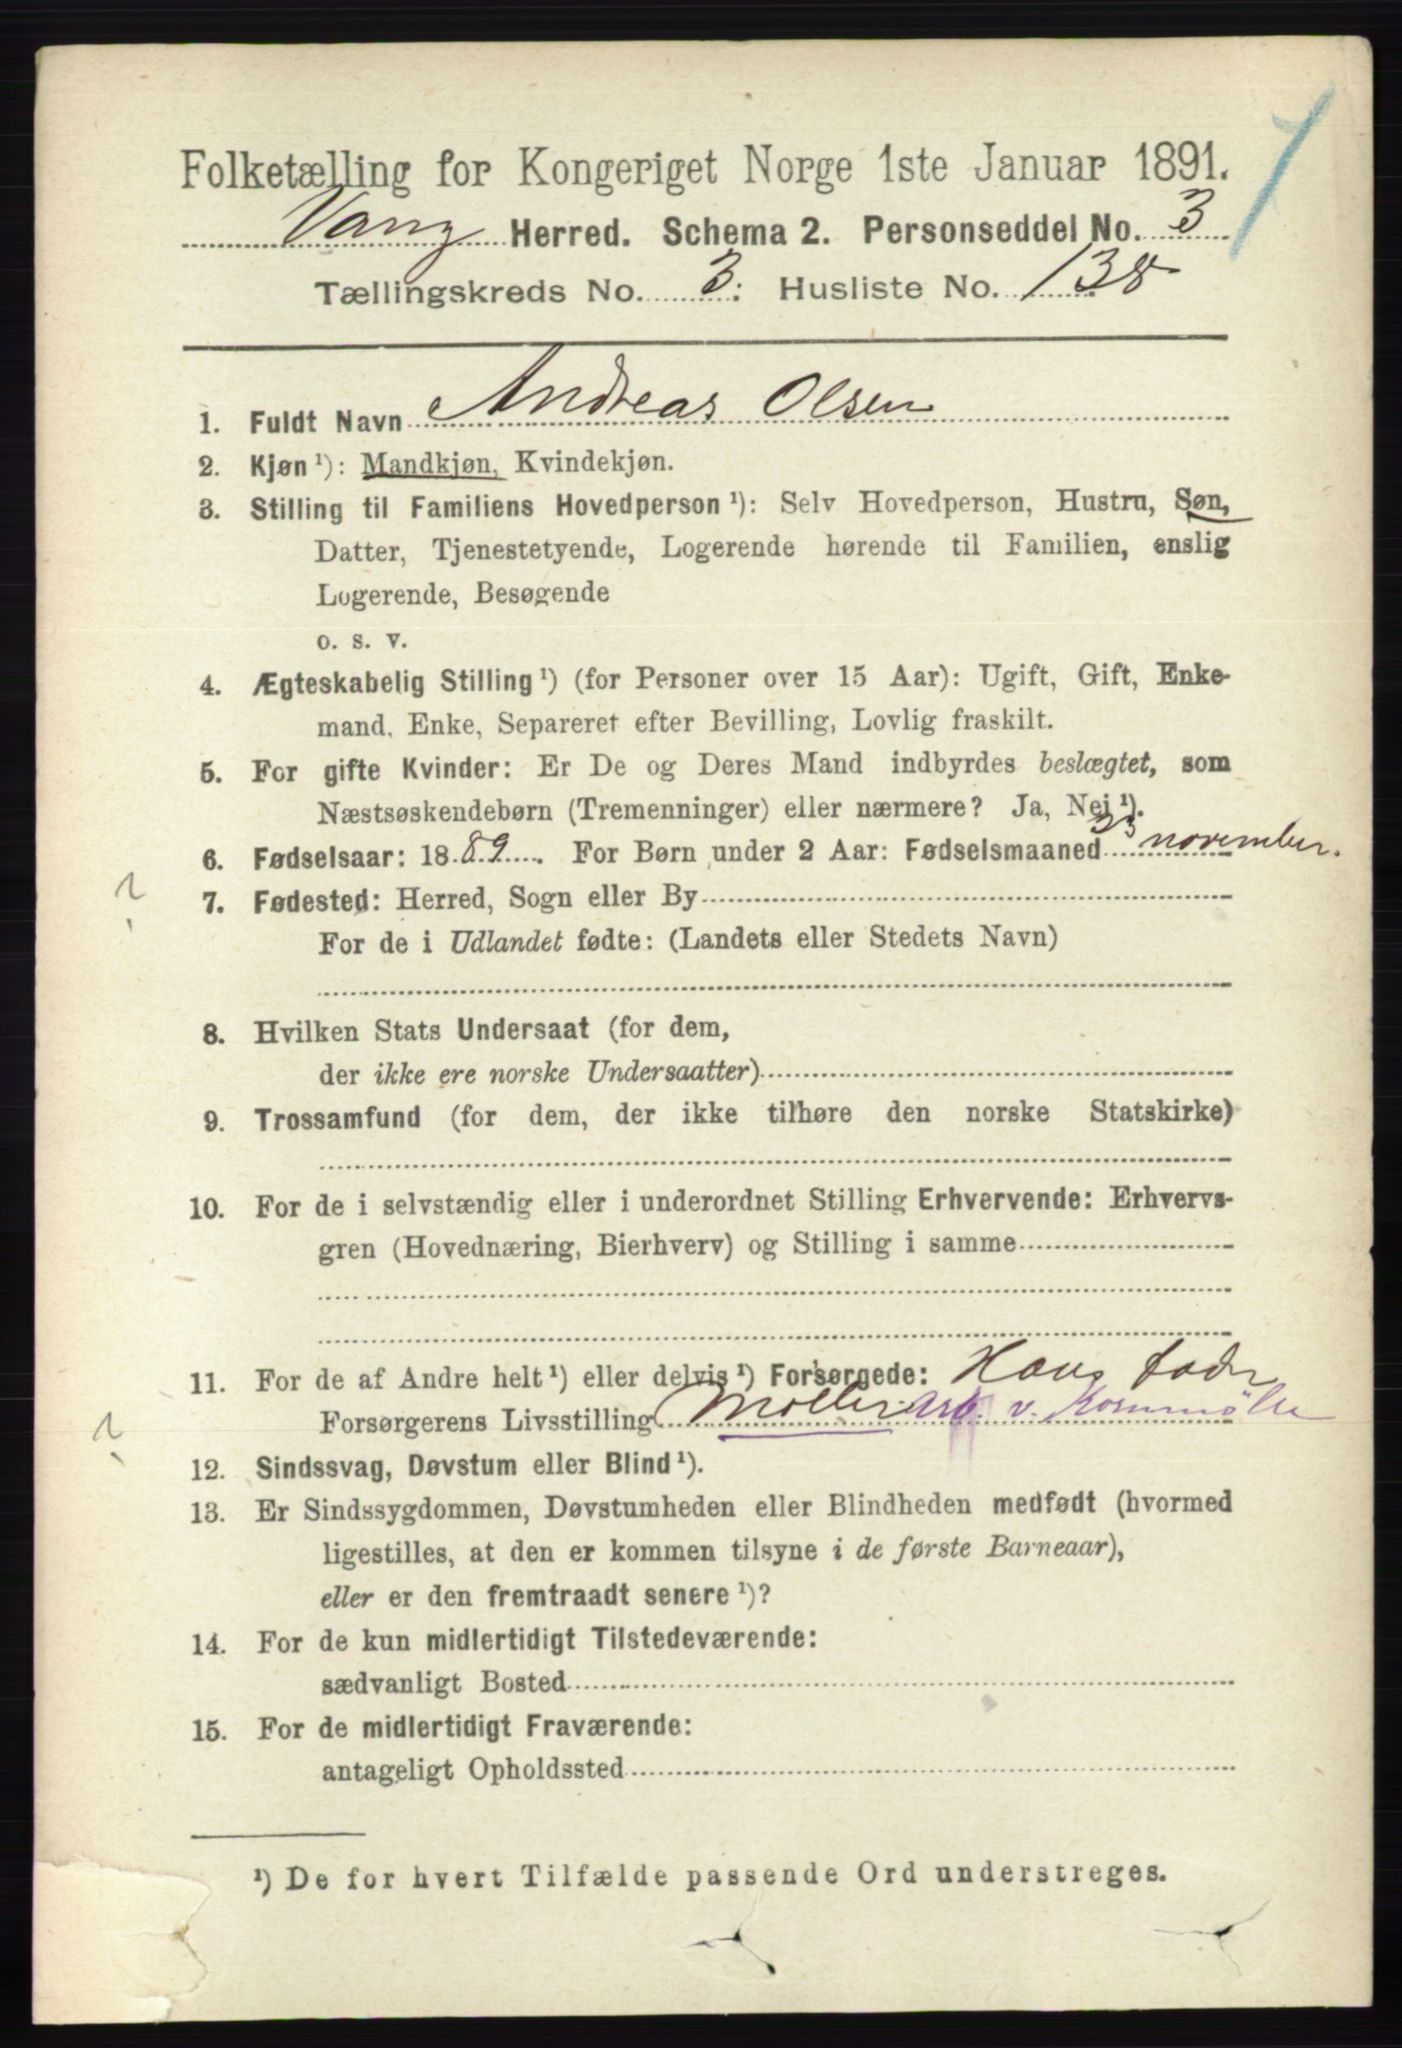 Folketælling for Kongeriget Norge 1ste Januar 1891.
Vang Herred. Schema 2. Personseddel No. 3
Tællingskreds No. 3. Husliste No. 138
1. Fuldt Navn Andreas Olsen
2. Kjøn¹): Mandkjøn, Kvindekjøn.
3. Stilling til Familiens Hovedperson¹): Selv Hovedperson, Hustru, Søn,
Datter, Tjenestetyende, Logerende hørende til Familien, enslig
Logerende, Besøgende
o. s. v.
4. Ægteskabelig Stilling¹) (for Personer over 15 Aar): Ugift, Gift, Enke-
mand, Enke, Separeret efter Bevilling, Lovlig fraskilt.
5. For gifte Kvinder: Er De og Deres Mand indbyrdes beslægtet, som
Næstsøskendebørn (Tremenninger) eller nærmere? Ja, Nej¹).
6. Fødselsaar: 1889. For Børn under 2 Aar: Fødselsmaaned november.
?
7. Fødested: Herred, Sogn eller By
For de i Udlandet fødte: (Landets eller Stedets Navn)
8. Hvilken Stats Undersaat (for dem,
der ikke ere norske Undersaatter)
9. Trossamfund (for dem, der ikke tilhøre den norske Statskirke)
10. For de i selvstændig eller i underordnet Stilling Erhvervende: Erhvervs-
gren (Hovednæring, Bierhverv) og Stilling i samme
11. For de af Andre helt¹) eller delvis¹) Forsørgede: Hans fader
Forsørgerens Livsstilling Møller arb. v. Kornmølle
?
12. Sindssvag, Døvstum eller Blind¹).
13. Er Sindssygdommen, Døvstumheden eller Blindheden medfødt (hvormed
ligestilles, at den er kommen tilsyne i de første Barneaar),
eller er den fremtraadt senere¹)?
14. For de kun midlertidigt Tilstedeværende:
sædvanligt Bosted
15. For de midlertidigt Fraværende:
antageligt Opholdssted
¹) De for hvert Tilfælde passende Ord understreges.